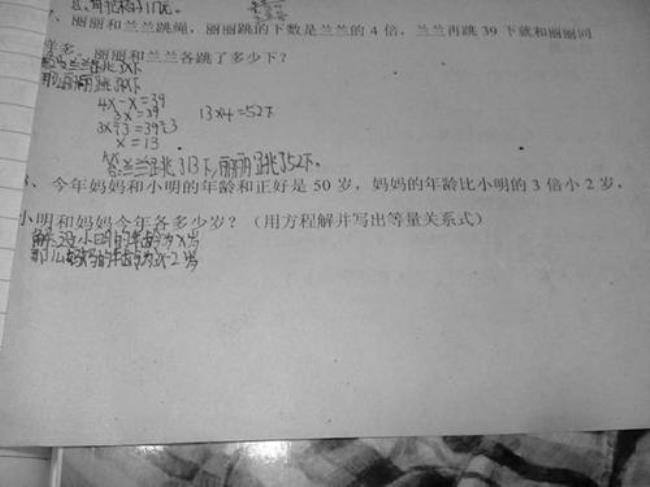 、丽丽和兰兰跳绳，丽丽跳的下数是兰兰的 4 倍，兰兰再跳 39 下就和丽丽同
样多。丽丽和兰兰各跳了多少下？
兰兰跳x下
丽丽跳4x下
4x-x=39
3x=39
13x4=52下
3x÷3=39÷3
x=13
答:兰兰跳了13下,丽丽跳了52下。
、今年妈妈和小明的年龄和正好是 50 岁，妈妈的年龄比小明的 3 倍小 2 岁，
小明和妈妈今年各多少岁？（用方程解并写出等量关系式）
解:设小明的年龄为x岁
那么妈妈的年龄为3x-2岁